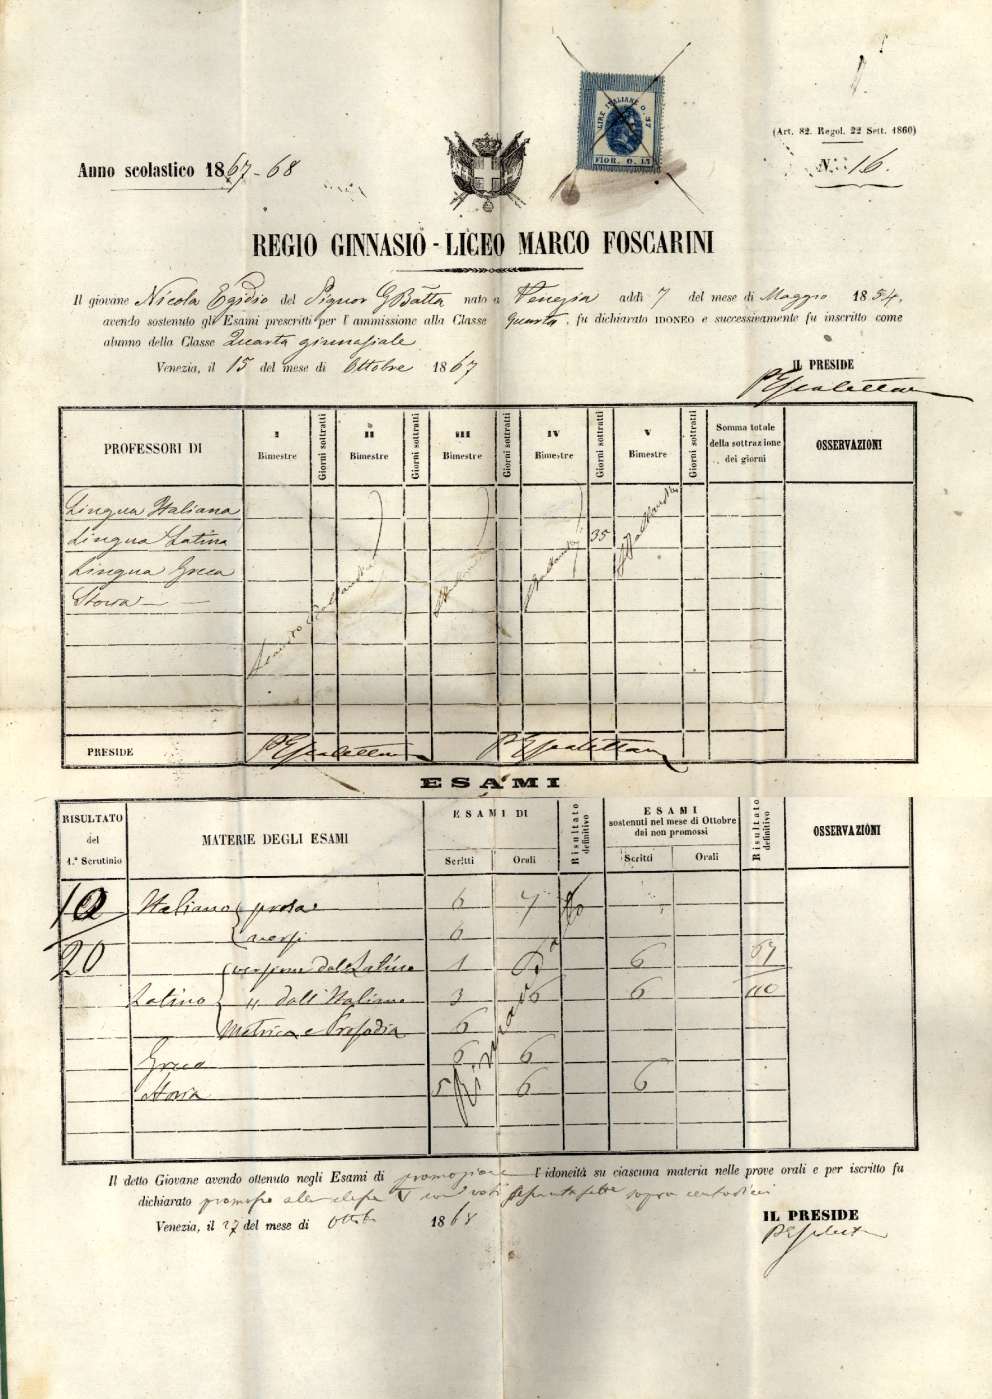 LIRE ITALIANE 0. 37
FIOR. 0. 15
(Art. 82. Regol. 22 Sett. 1860)
Anno scolastico 1867-68
N. 16.
REGIO GINNASIO - LICEO MARCO FOSCARINI
Il giovane Nicola Egidio del Signor GBatta nato a Venezia addì 7 del mese di Maggio 1854,
avendo sostenuto gli Esami prescritti per l'ammissione alla Classe quarta fu dichiarato IDONEO e successivamente fu inscritto come
alunno della Classe Quarta ginnasiale
Venezia, il 15 del mese di Ottobre 1867
IL PRESIDE
PROFESSORI DI
I Bimestre
Giorni sottratti
II Bimestre
Giorni sottratti
III Bimestre
Giorni sottratti
IV Bimestre
Giorni sottratti
V Bimestre
Giorni sottratti
Somma totale della sottrazione dei giorni
OSSERVAZIONI
Lingua Italiana
Lingua Latina 35
Lingua Greca
Storia
PRESIDE
ESAMI
RISULTATO del 1.° Scrutinio
MATERIE DEGLI ESAMI
ESAMI DI
Scritti Orali
Risultato definitivo
ESAMI sostenuti nel mese di Ottobre dai non promossi
Scritti Orali
Risultato definitivo
OSSERVAZIONI
Italiano prosa 6 7
versi 6
20 versione dal Latino 1 6 67
Latino " dall'Italiano 3 6 6 110
Metrica e Prosodia 6
Greco 6 6
Storia 5 6 6
Il detto Giovane avendo ottenuto negli Esami di promozione l'idoneità su ciascuna materia nelle prove orali e per iscritto fu
dichiarato promosso alla classe V con voti sessantasette sopra centodieci
Venezia, il 27 del mese di Ottob. 1868
IL PRESIDE